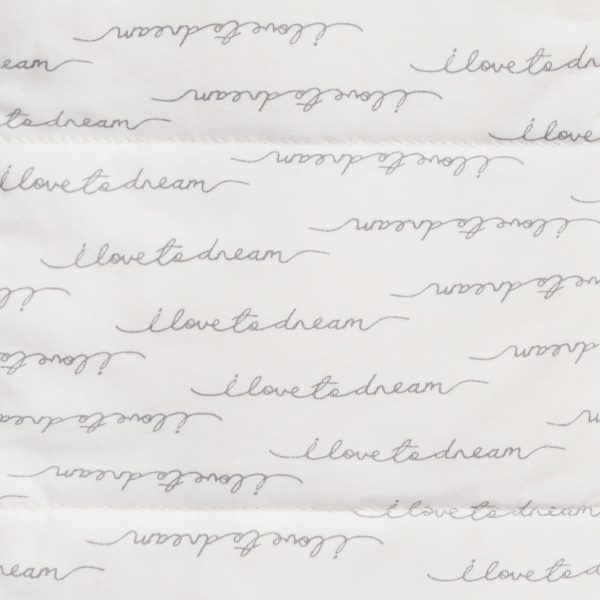 i love to dream
eam
i love to dr
i love to dream
to dream
i love
i love to dream
i love to dream
i love to dream
i love to dream
e to dream
i l
i love to dream
dream
i love to
i love to dream
i love to drea
m
i love to dream
i love to dream
i love to dream
i love to dream
ream
i love to d